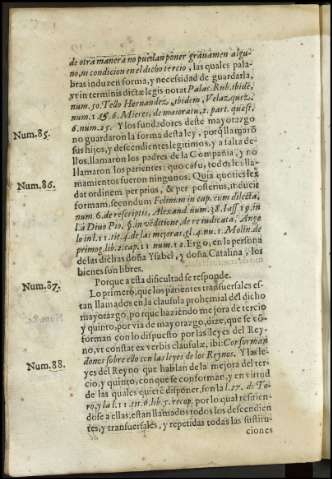 de otra manera no puedan poner gravamen algu-
no, ni condicion en el dicho tercio, las quales pala-
bras induzen forma, y necesidad de guardarla,
vt in terminis dictæ legis notat Palac. Rub. ibidē,
num. 50. Tello Hernandez, ibidem, Velaz.
num. Mieres, de maioratu, 1. part. quæst.
6. num. 25. Y los fundadores deste mayorazgo
Num. 85.
no guardaron la forma desta ley, porq̃ llamarō
sus hijos, y descendientes legitimos, y a falta de-
llos, llamaron los padres de la Compañia, y no
llamaron los parientes: quo casu, todos los lla-
mamientos fueron ningunos. Quia quoties lex
Num. 86.
dat ordinem per prius, & per posterius, inducit
formam, secundum Felinum in cap. cum dilecta,
num. 6. de rescriptis, Alexand. num. 38. Iass.
de rei vindicat. Ange
lo in l. 11. tit. 4. de las mejoras, gl. 4. num. 1. Molin. de
primog. lib. 2. cap. 11. num. 12. Ergo, en la persona
de las dichas doña Ysabel, y doña Catalina, los
bienes son libres.
Num. 87.
Porque a esta dificultad se responde.
Lo primero, que los parientes transuersales es-
tan llamados en la clausula prohemial del dicho
mayorazgo, porque haziendo mejora de tercio
y quinto, por via de mayorazgo, dize, que se cō-
forman con lo dispuesto por las leyes del Rey-
no, vt constat ex verbis clausulæ, ibi: Conforman
donos sobre ello con las leyes de los Reynos. Y las le-
Num. 88.
yes del Reyno que hablan de la mejora del ter-
cio, y quinto, con que se conforman, y en virtud
de las quales quierē disponer, son la l. 27. de To-
ro, y la l. 11. tit. 6. lib. 5. recop. por lo qual refirien-
dose a ellas, estan llamados todos los descendien-
tes, y transuersales, y repetidas todas las sustitu-
ciones